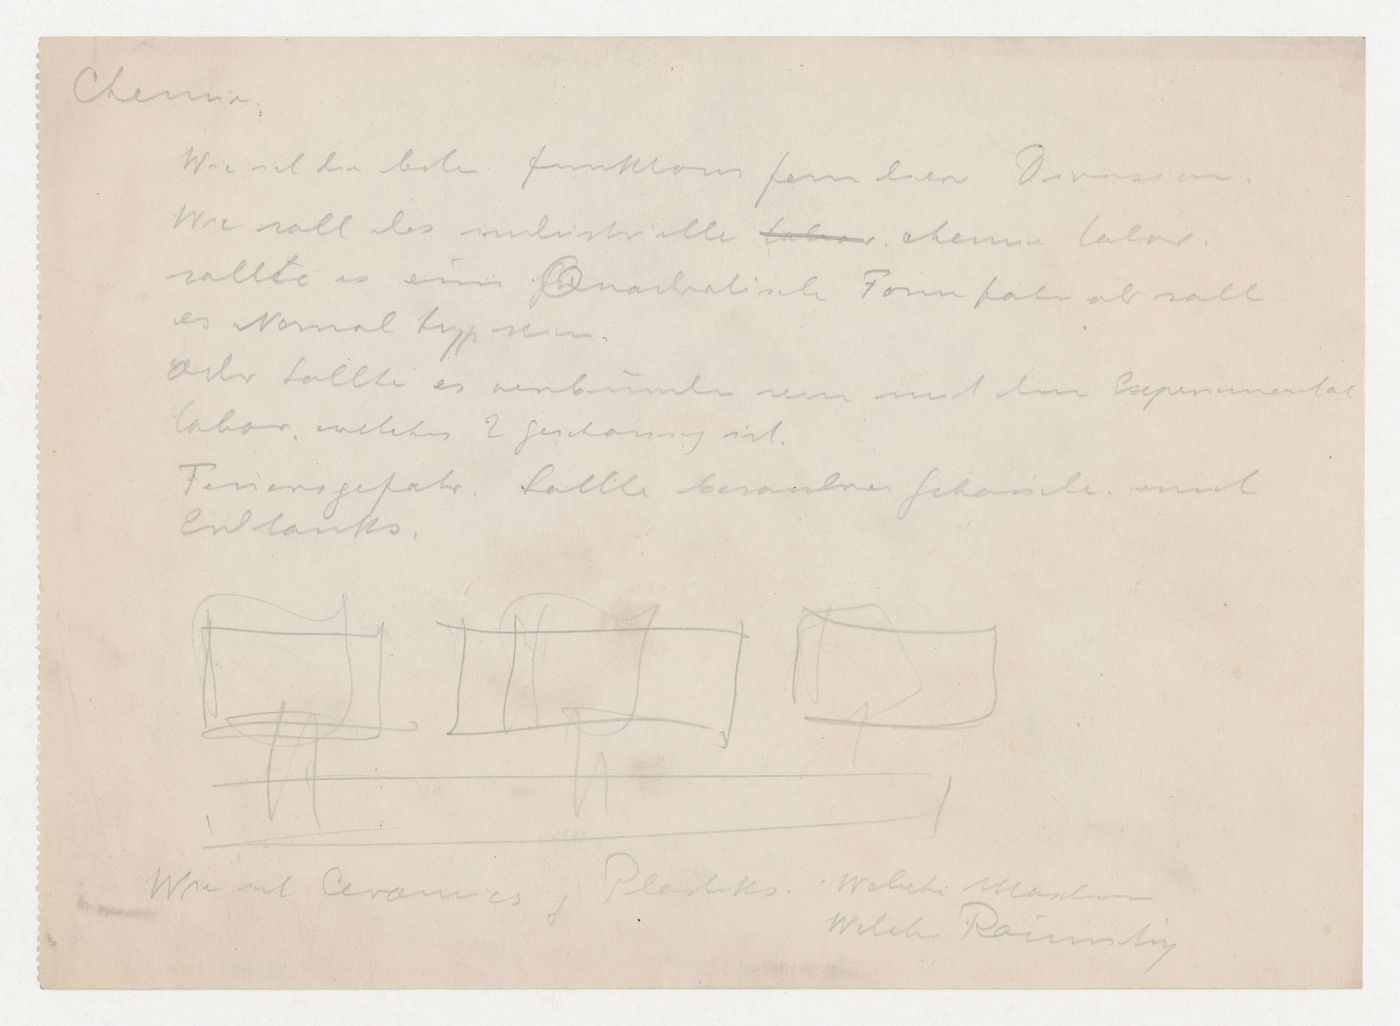 Chemie.
Wie ist die beste funktions für diese Division.
Wie soll das industrielle labor. chemie labor.
sollte es eine Quadratische Form haben oder soll
es Normal typ sein.
Oder sollte es verbunden sein mit dem Experimental
labor, welches 2 geschossig ist.
Feuersgefahr. Sollte besondere Gebäude. mit
Erdtanks.
Wie ist Ceramics & Plastiks. Welche Maschinen
Welche